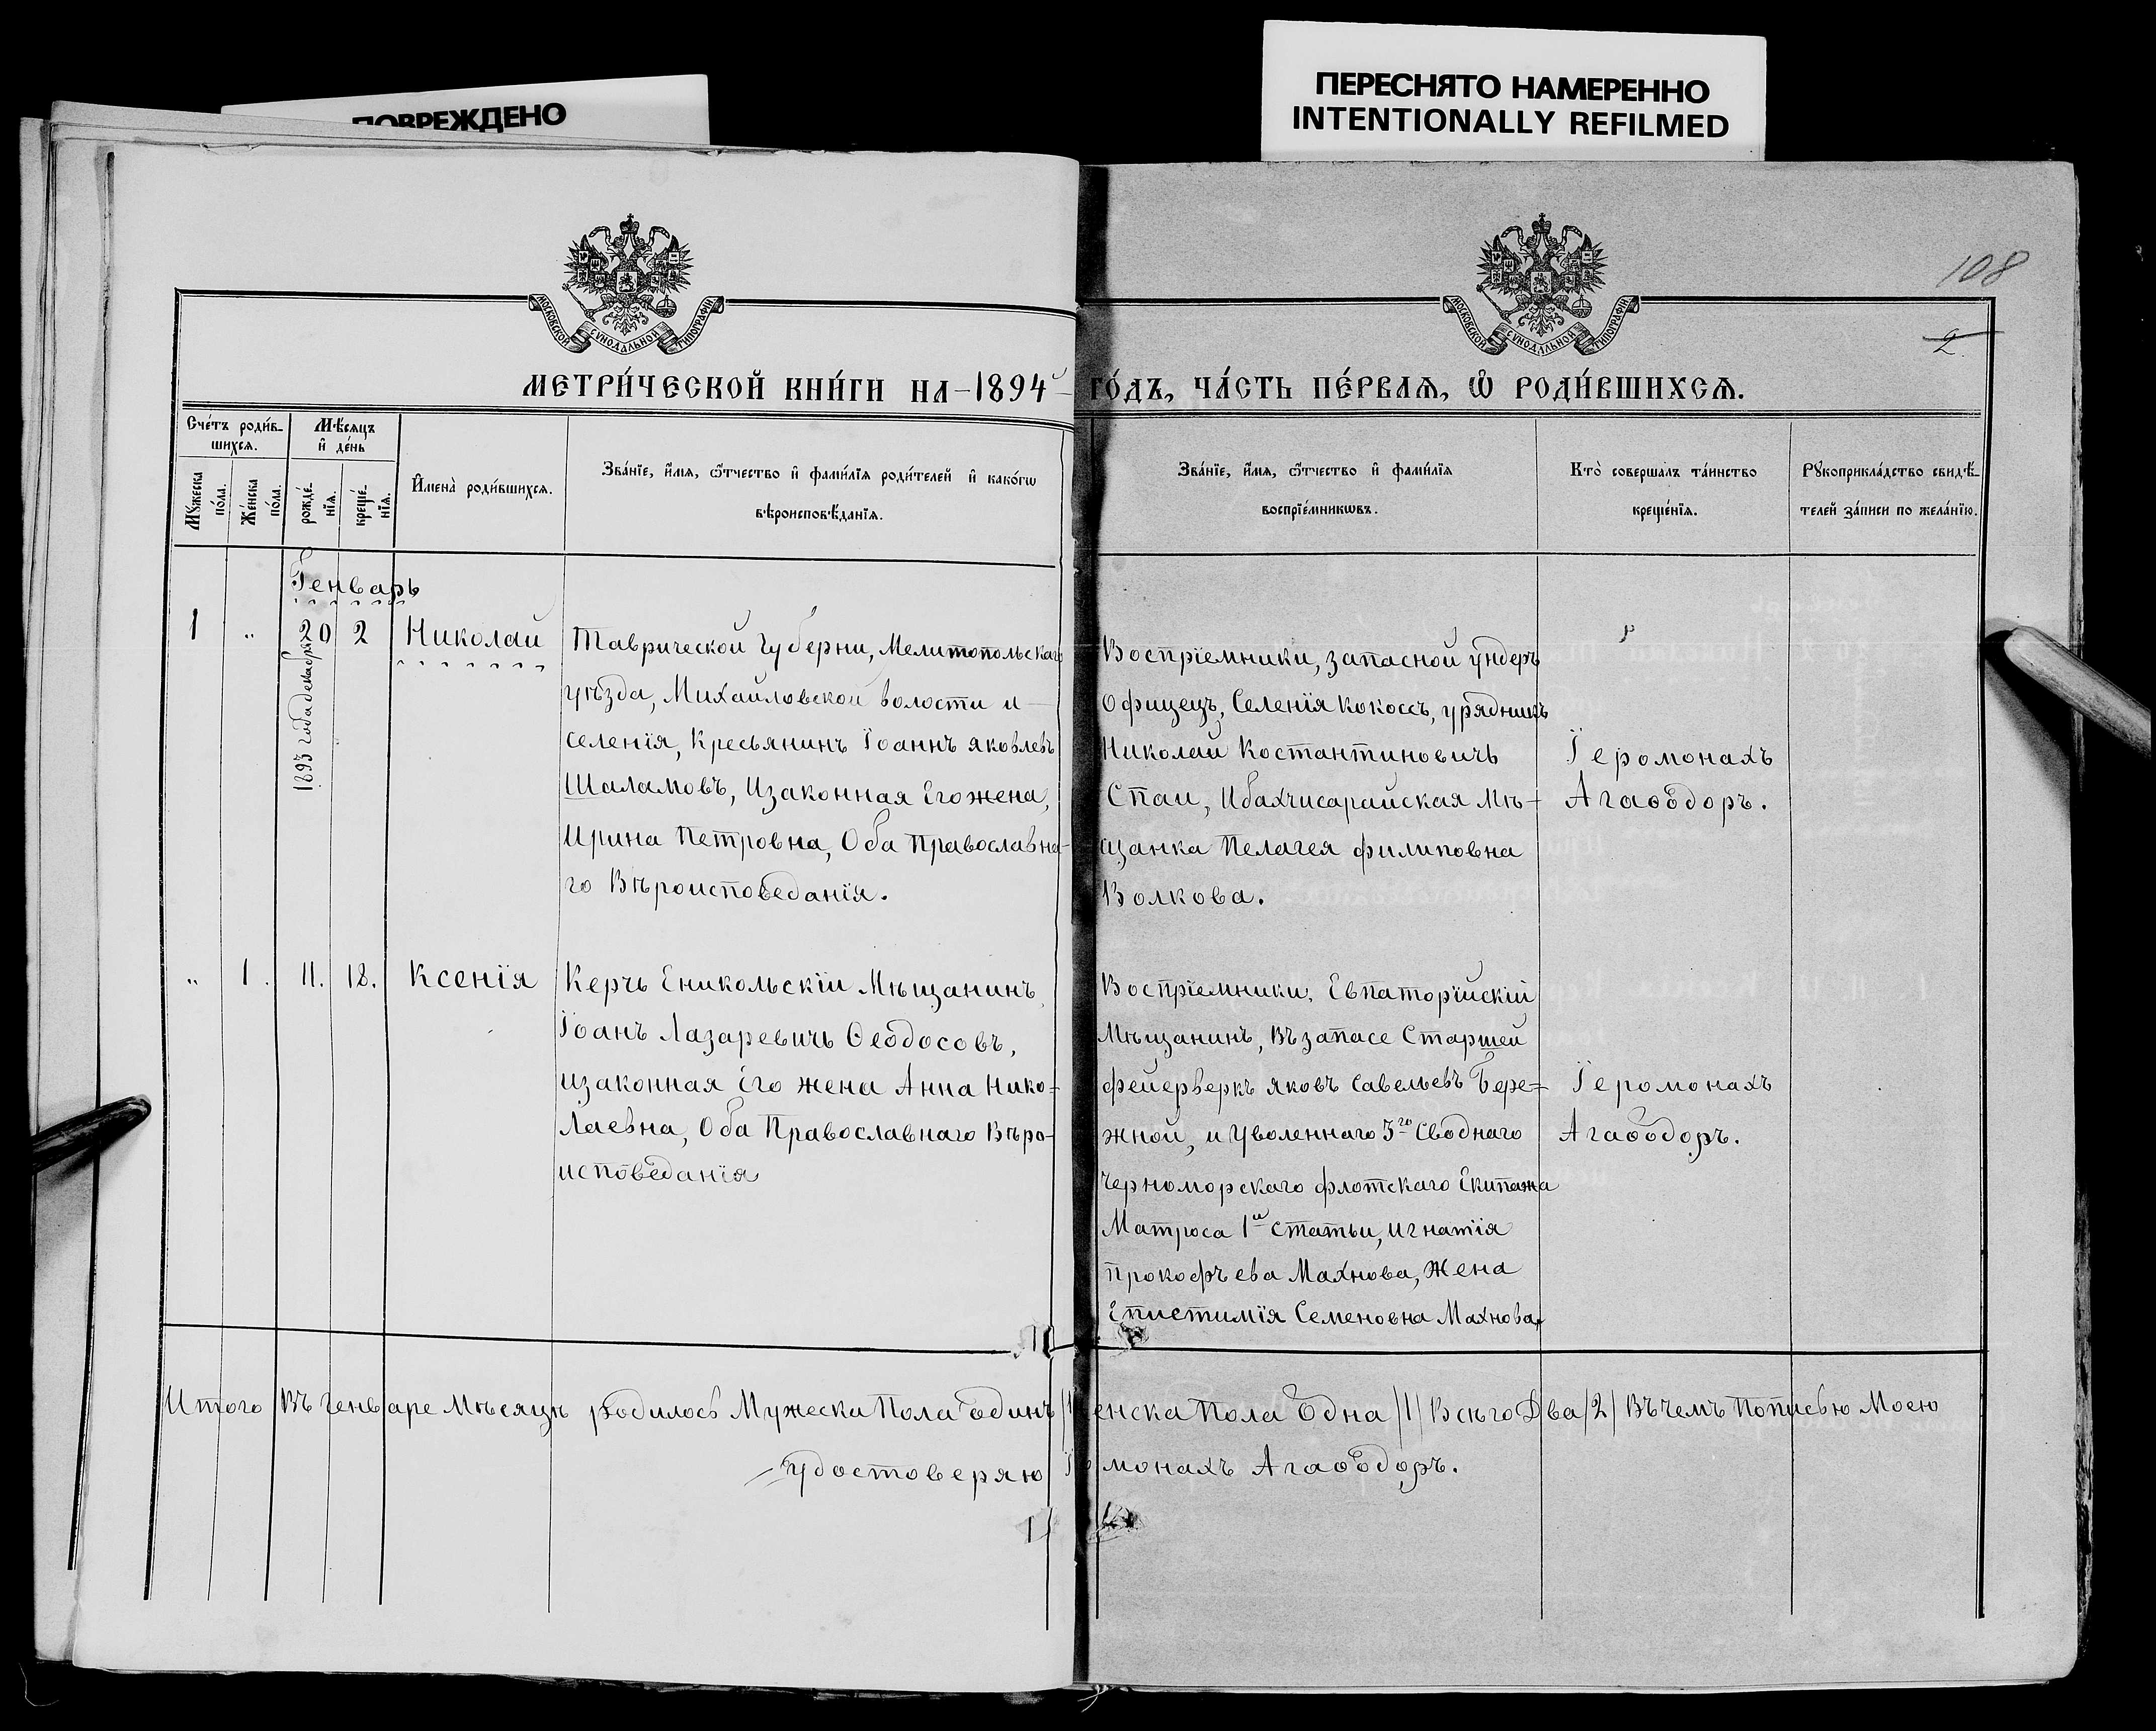 ПОВРЕЖДЕНО
ПЕРЕСНЯТО НАМЕРЕННО
INTENTIONALLY REFILMED
108
2.
МОСКОВСКОЙ СѴНОДАЛЬНОЙ ТИПОГРАФІИ
МОСКОВСКОЙ СѴНОДАЛЬНОЙ ТИПОГРАФІИ
МЕТРИ́ЧЕСКОЙ КНИ́ГИ НА 1894й ГО́ДЪ, ЧА́СТЬ ПЕ́РВАѦ, Ѡ РОДИ́ВШИХСѦ.
Сче́тъ роди́в-
шихсѧ.
Мꙋжеска
по́ла.
Же́нска
по́ла.
Мѣ́сѧцъ
и де́нь
рожде́-
нїѧ.
креще́-
нїѧ.
Имена̀ роди́вшихсѧ.
Зва́нїе, и́мѧ, ѻ́тчество и фами́лїѧ роди́телей и како́гѡ
вѣроисповѣ́данїѧ.
Зва́нїе, и́мѧ, ѻ́тчество и фами́лїѧ
воспрїе́мникѡвъ.
Кто̀ совершалъ та́инство
креще́нїѧ.
Рꙋкоприкла́дство свидѣ́-
телей за́писи по жела́нїю.
Генварь
1 " 20 2 Николай
1893 года декабря
Таврической губерни, Мелитопольскаго
уѣзда, Михайловской волости и
селенія, Кресьянинъ Іоаннъ яковлевъ
Шаламовъ, Изаконная Его жена,
Ирина Петровна, Оба Православна-
го Вѣроисповеданія.
Воспріемники, запасной ундеръ
Офицеръ, Селенія Кокосъ, урядникъ
Николай Костантиновичъ
Спаи, Ибахчисарайская Мѣ-
щанка Пелагея филиповна
Волкова.
Іеромонахъ
Агаѳодоръ.
" 1. 11. 18. Ксенія
Керчъ Еникольскій Мѣщанинъ
Іоанъ Лазаревичъ Ѳеодосовъ,
изаконная Его жена Анна Нико=
лаевна, Оба Православнаго Вѣро-
исповеданія
Воспріемники, Евпаторійскій
Мѣщанинъ, Въ запасе Старшей
фейерверкъ яковъ Савельевъ Бере=
жной, и Уволеннаго 3го Своднаго
Черноморскаго флотскаго Екипажа
Матроса 1й статьи, игнатія
прокофъева Махнова, Жена
Епистимія Семеновна Махнова
Іеромонахъ
Агаѳодоръ.
Итого Въ Генваре Мѣсяцѣ родилось Мужески Пола Одинъ енска Пола Одна /1/ Всѣго Два /2/ Въ чемъ Пописью Моею
удостоверяю монахъ Агаѳодоръ.